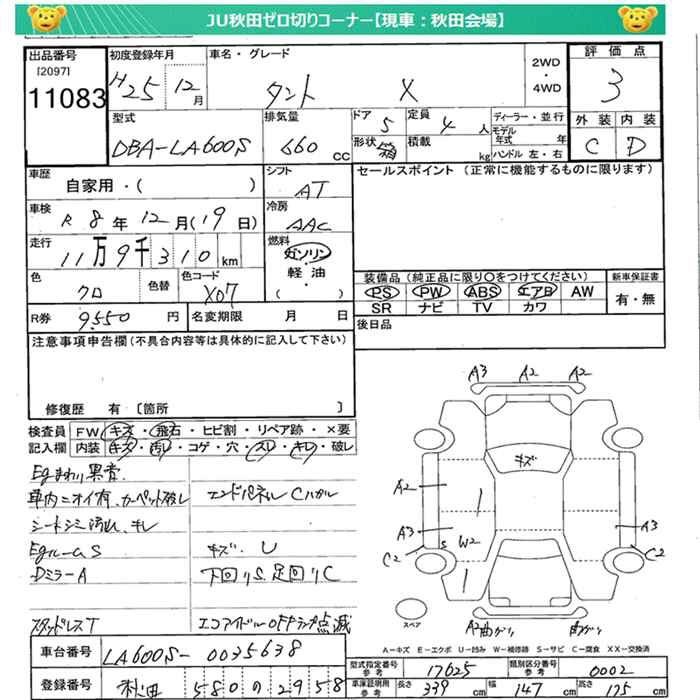 JU秋田ゼロ切りコーナー【現車：秋田会場】
出品番号
[2097]
11083
初度登録年月
H25 12月
車名・グレード
タント X
2WD
・
4WD
評価点
3
外装 内装
C D
型式
DBA-LA600S
排気量
660 cc
ドア 5
定員 4人
形状 箱
積載 kg
ディーラー・並行
モデル年式 年
ハンドル 左・右
車歴
自家用・( )
シフト
AT
セールスポイント (正常に機能するものに限ります)
車検
R 8年12月(19日)
冷房
AAC
走行
11万9千310km
燃料
ガソリン
・
軽油
・
( )
色
クロ
色替
色コード
X07
装備品 (純正品に限り○をつけてください)
PS PW ABS エアB AW
SR ナビ TV カワ
新車保証書
有・無
R券 9550 円
名変期限 月 日
後日品
注意事項申告欄 (不具合内容等は具体的に記入して下さい)
修復歴 有 〔箇所 〕
検査員
記入欄
FW キズ・飛石・ヒビ割・リペア跡・×要
内装 キズ・汚レ・コゲ・穴・スレ・キレ・破レ
Egまわり異音
車内ニオイ有、カーペット破レ
エンドパネルCハガレ
シートシミ汚レ、キレ
EgルームS
キズ・U
DミラーA
下回りS、足回りC
スタッドレスT
エコアイドルOFFランプ点滅
A3 A2 A2
キズ
A2
A3
W2
S
C2
A3
C2
A2曲がり 曲がり
スペア
A－キズ E－エクボ U－凹み W－補修跡 S－サビ C－腐食 XX－交換済
車台番号
LA600S-0035638
登録番号
秋田 580 の 2958
型式指定番号
参考
17625
類別区分番号
参考
0002
車庫証明用
参考
長さ 339cm
幅 147cm
高さ 175cm